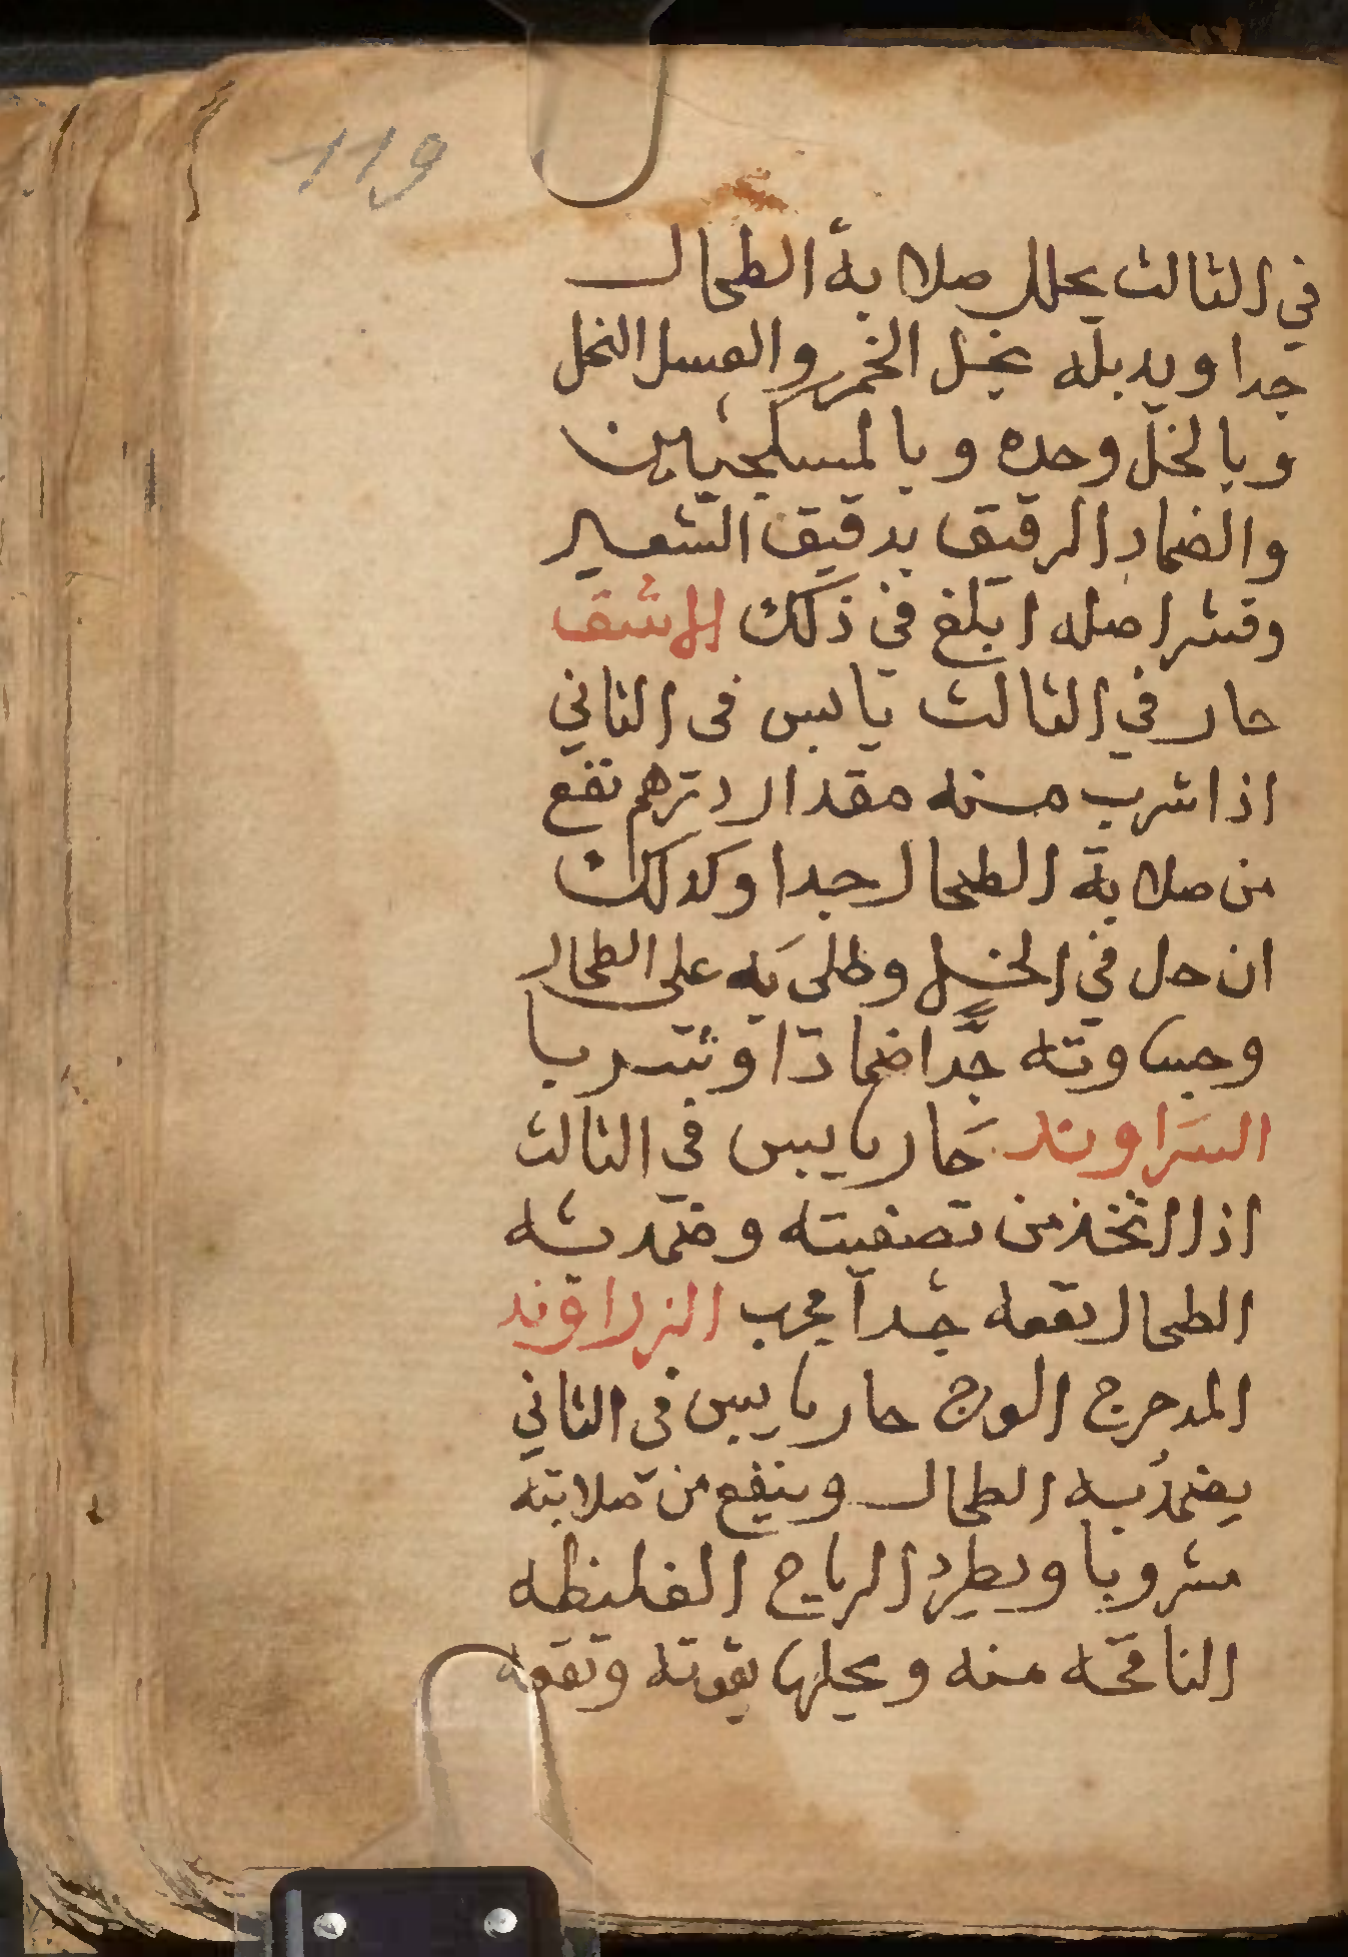 119
في الثالث يحلل صلابة الطحال
جدا ويدبله بخل الخمر والعسل النحل
وبالخل وحده وبالمسكجنبين
والضماد الرقيق بدقيق الشعير
وقشر اصله ابلغ في ذلك الاشق
حار في الثالث يابس في الثاني
اذا شرب منه مقدار درهم نفع
من صلابة الطحال جدا وكذلك
ان حل في الخل وطلي به على الطحال
وجساوته جدا ضمادا وشربا
السراوند حار يابس في الثالث
اذا اتخذ من تصفيته وضمد به
الطحال نفعه جدا مجرب الزراوند
المدحرج الوج حار يابس في الثاني
يضمد به الطحال وينفع من صلابته
مشروبا ويطرد الرياح الغليظه
النافخه منه ويحللها بقوته ونفعه